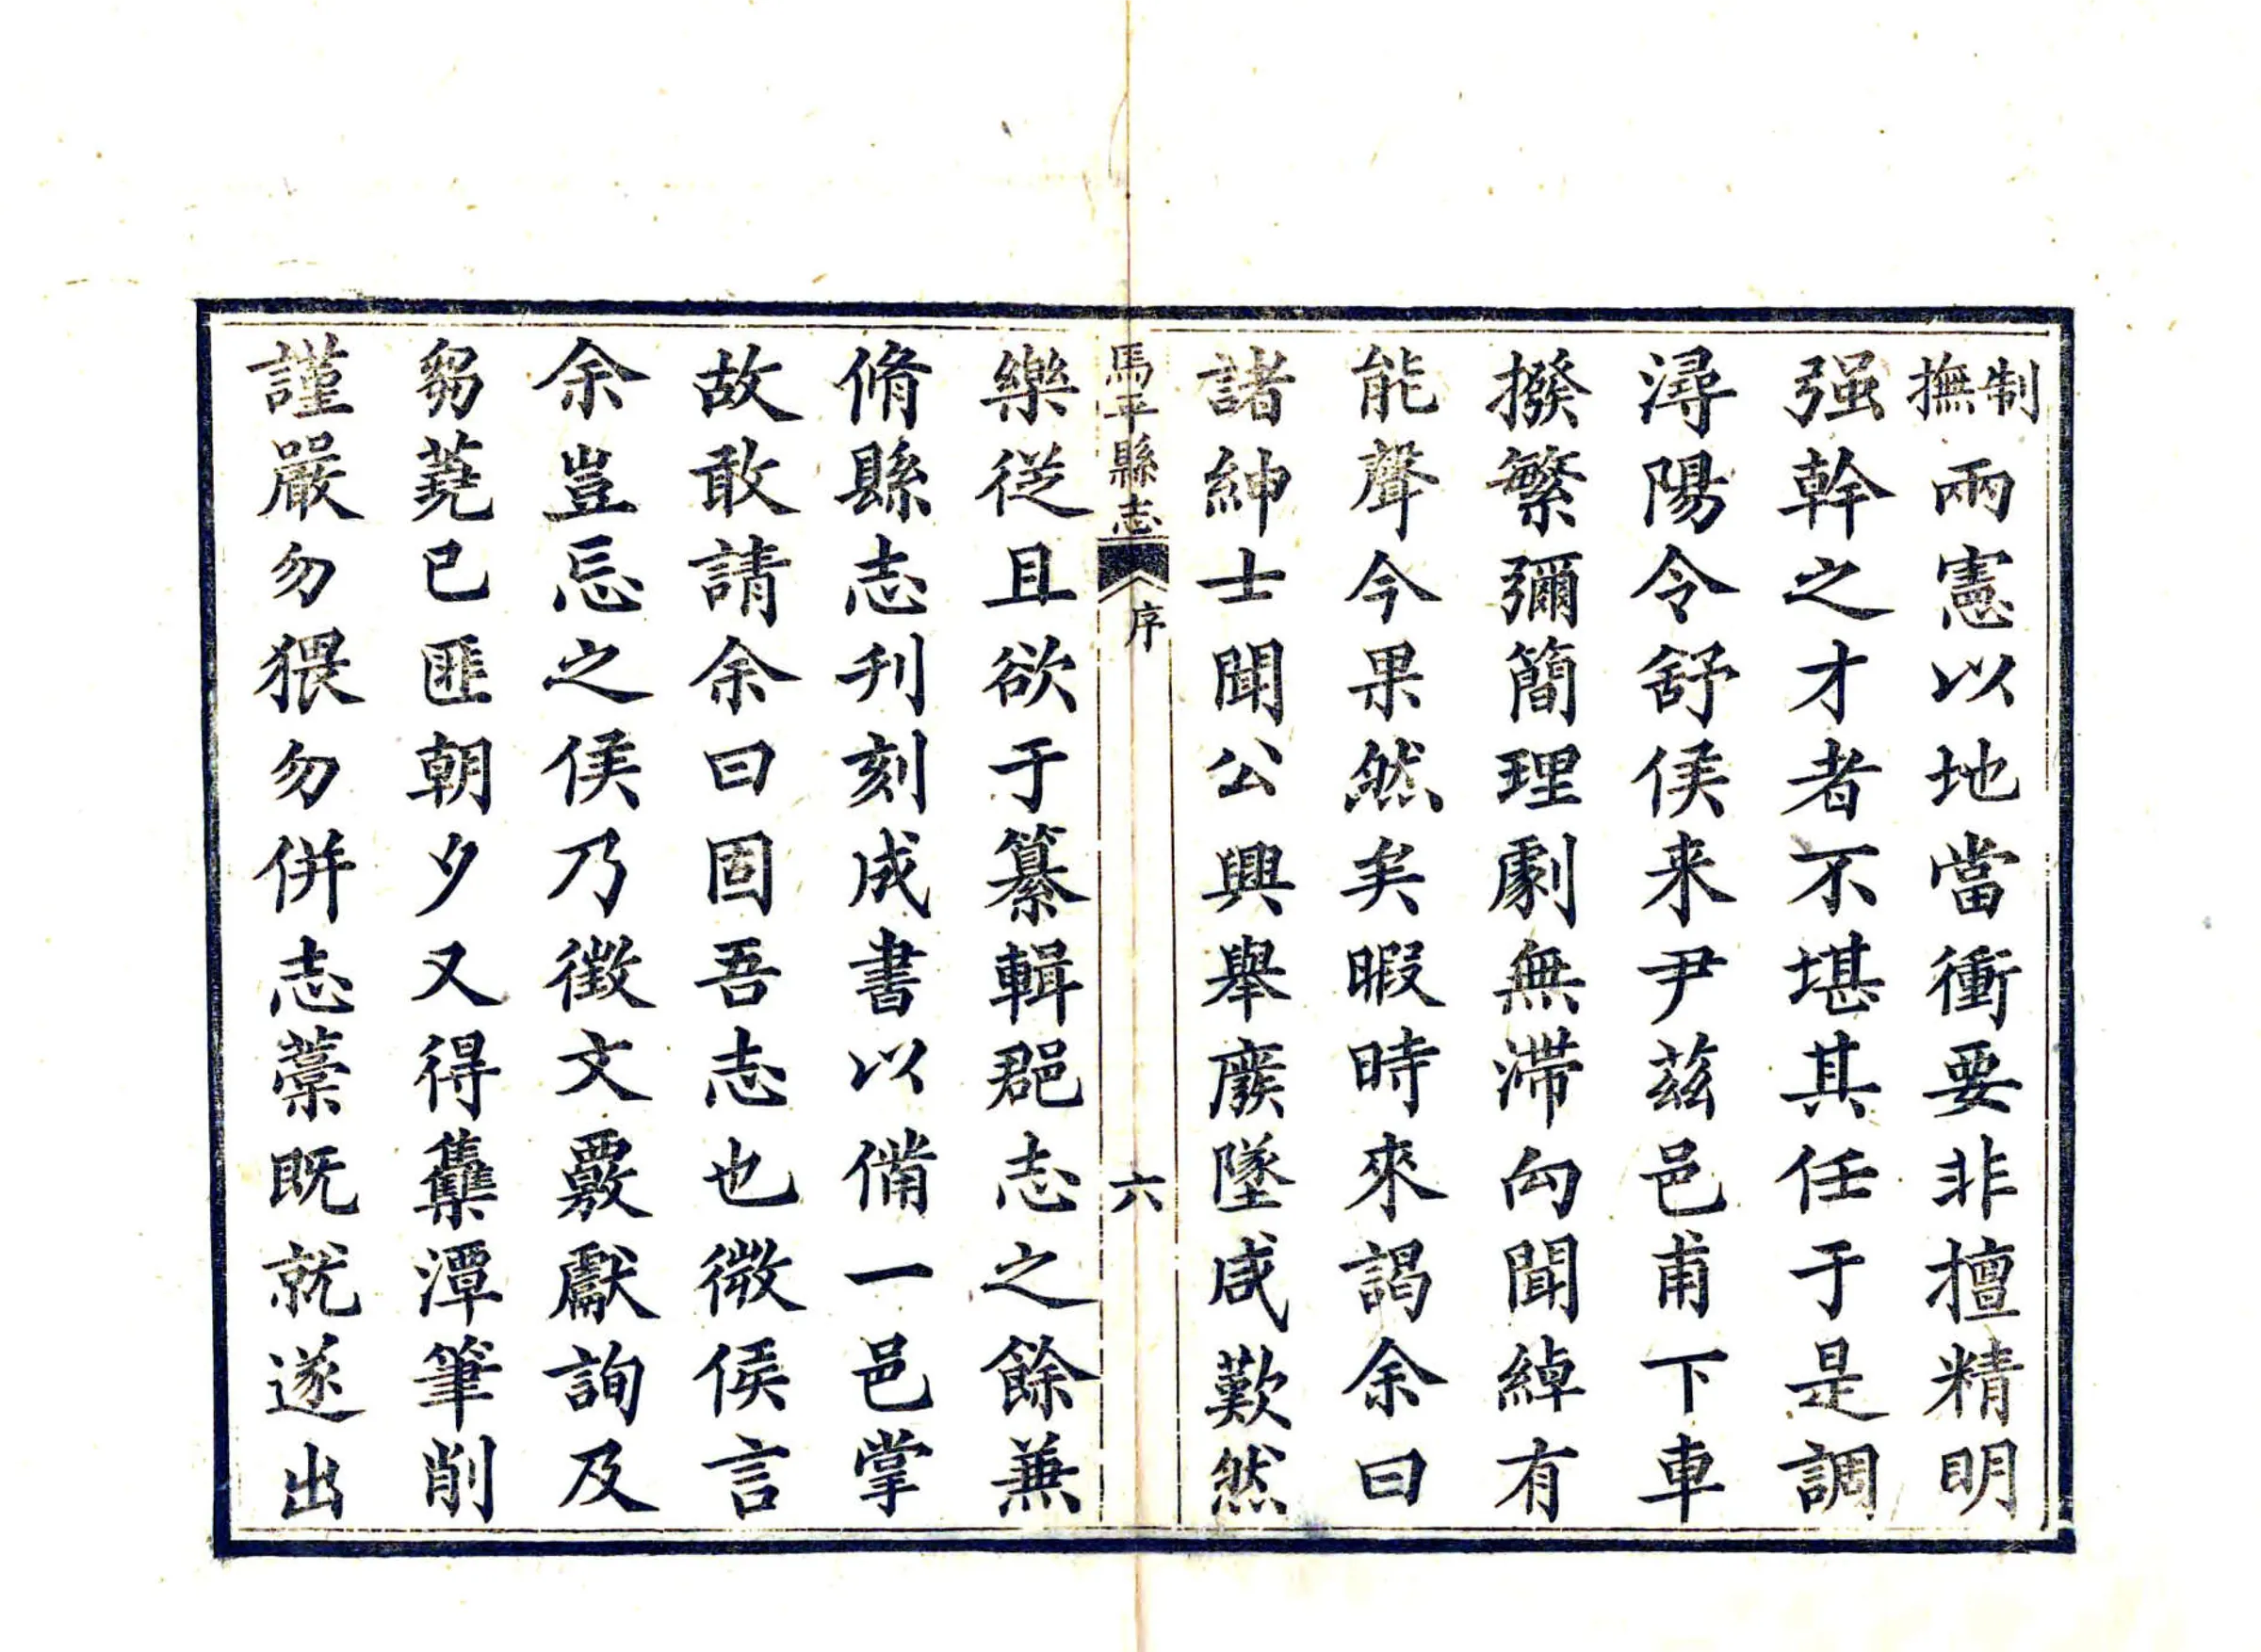 制撫兩憲以地當衝要非擅精明
强幹之才者不堪其任于是調
潯陽令舒侯来尹茲邑甫下車
撥繁彌簡理劇無滯勾聞綽有
能聲今果然矣暇時來謁余曰
諸紳士聞公興舉廢墜咸歎然
馬平縣志
序
六
樂從且欲于纂輯郡志之餘兼
脩縣志刋刻成書以俻一邑掌
故敢請余曰固吾志也微侯言
余豈忘之侯乃徵文覈獻詢及
芻蕘已匪朝夕又得龔潭筆削
謹嚴勿猥勿併志藁既就遂出